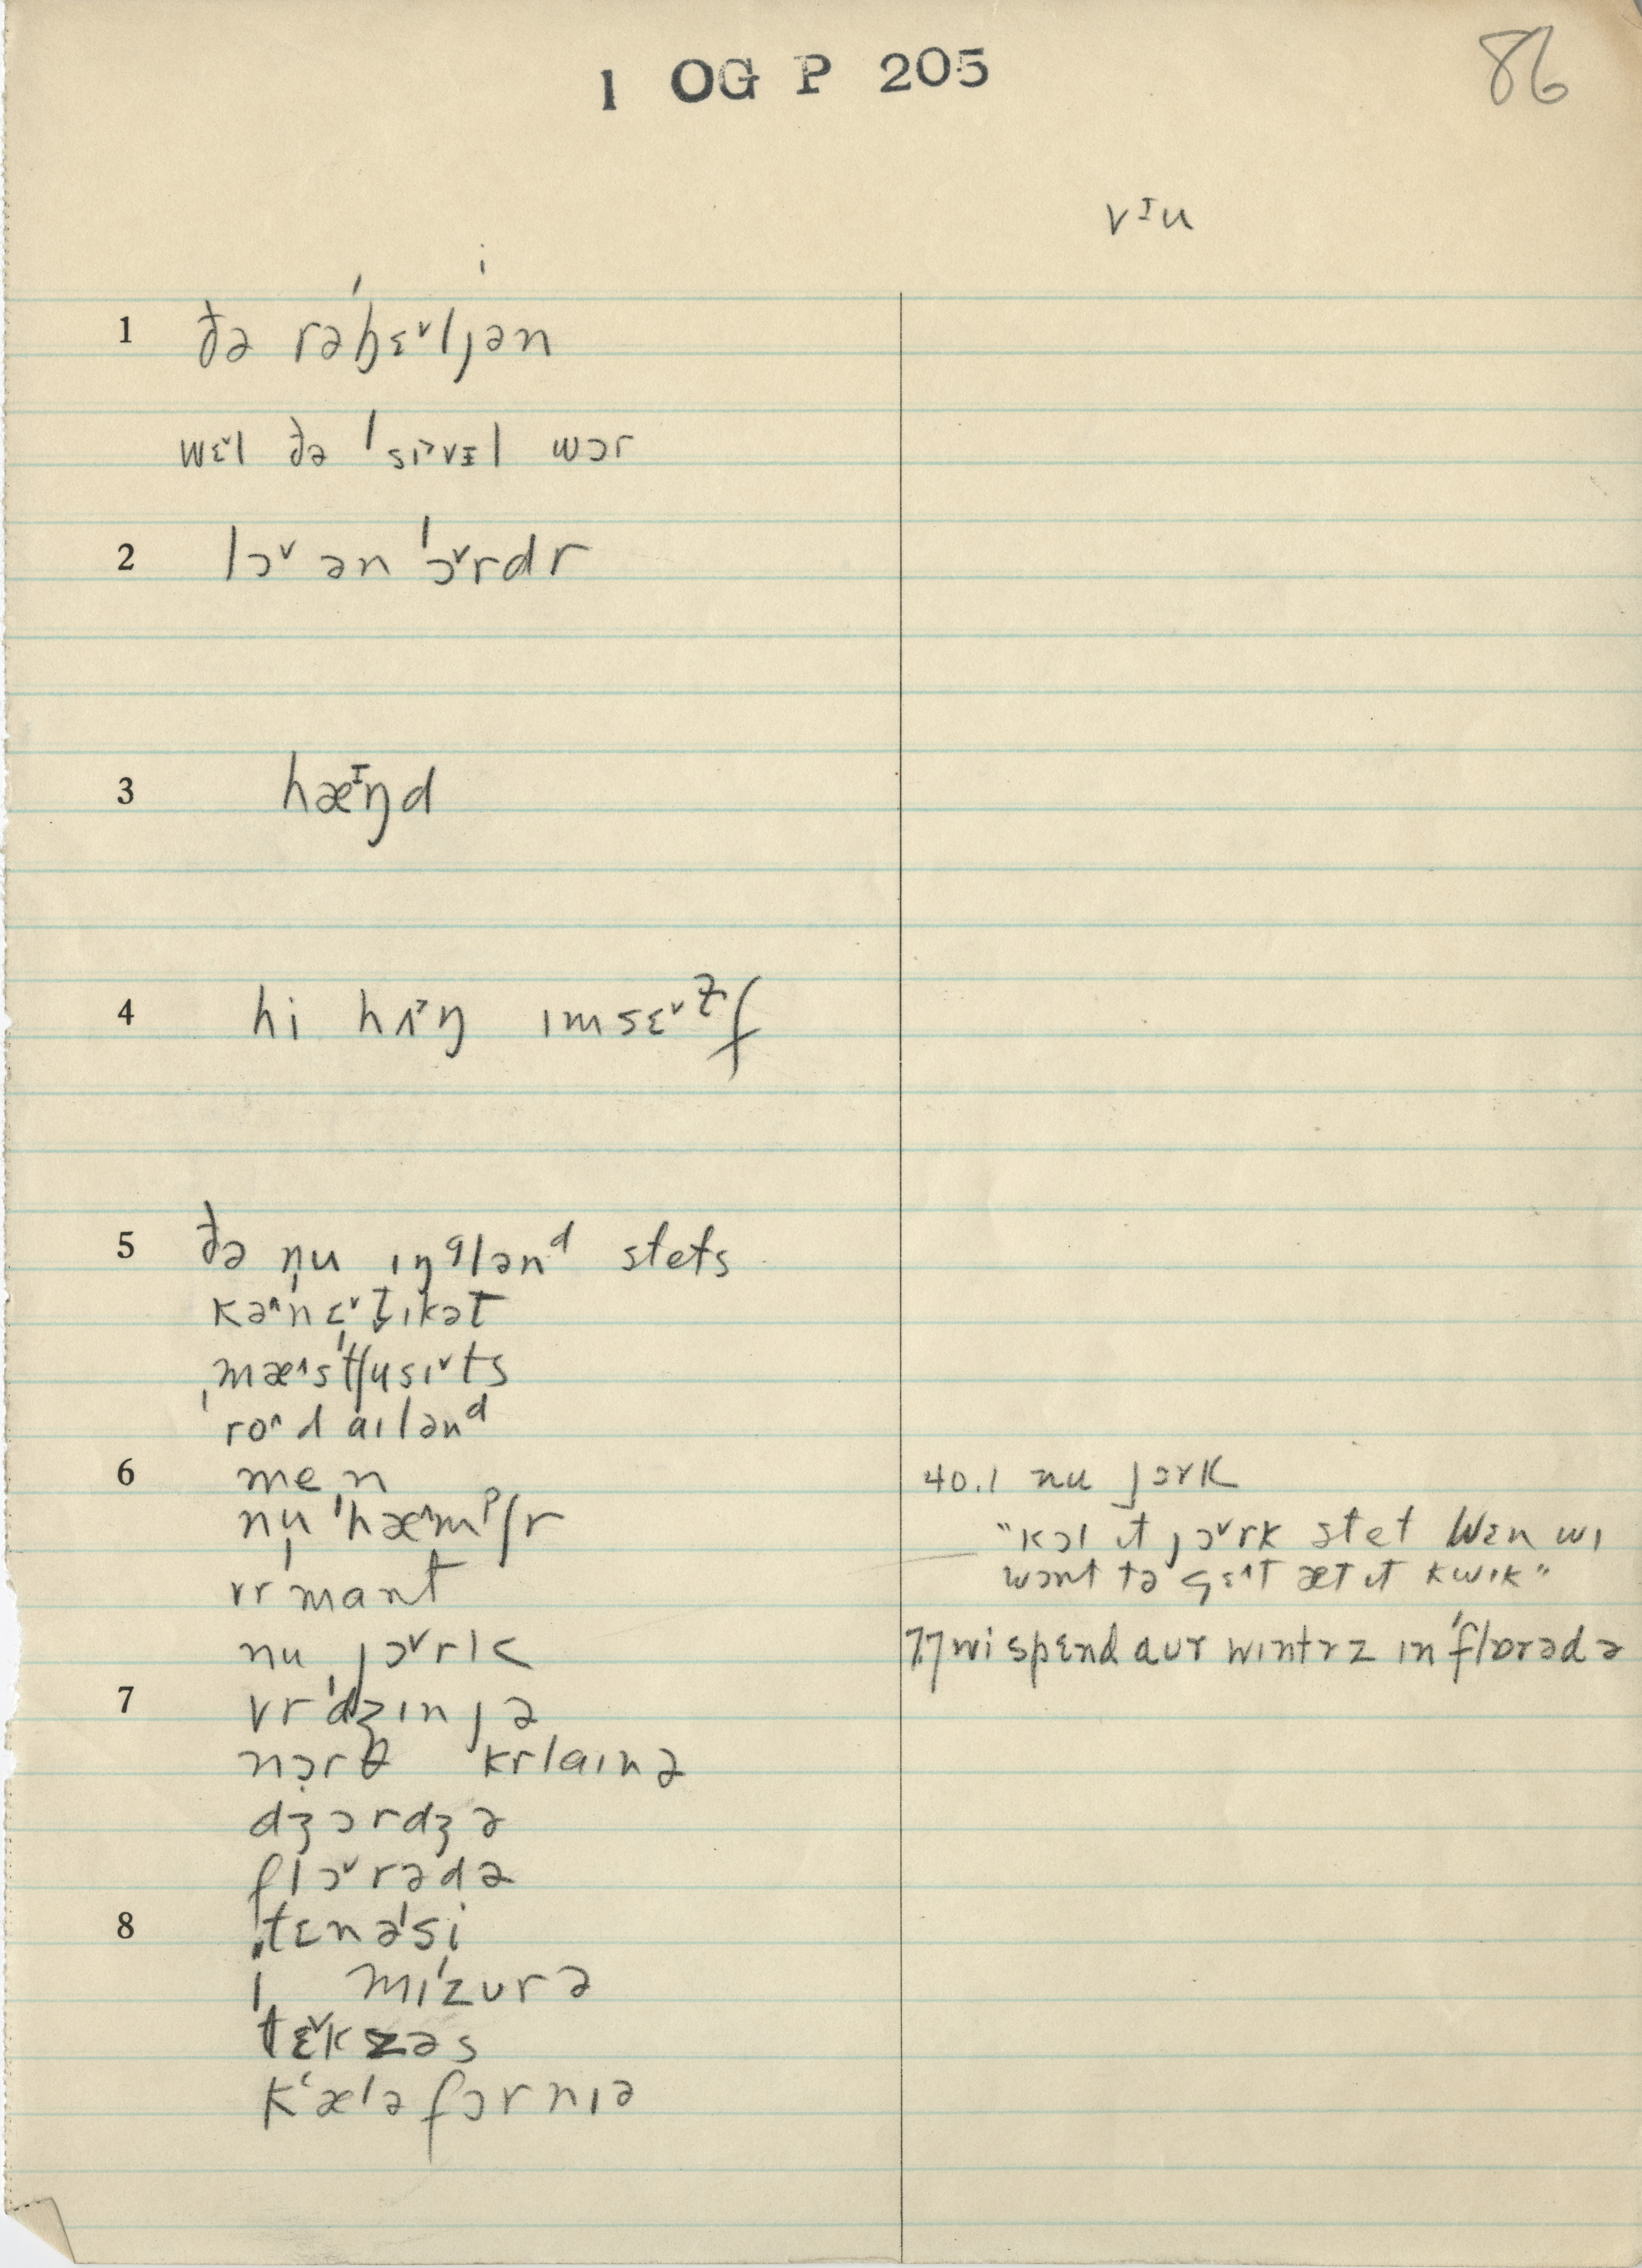 1 OG P 205
86
vᶦu
1 ðə rəˈbɛˇljən
wɛˇl ðə ˈsɪ˃vɪl wɔr
2 lɔˇ ən ˈɔˇrdr
3 hæᶦŋd
4 hi hʌ˃ŋ ɪmsɛˇɫf
5 ðə nu ɪŋᵍlənᵈ stets
kəˆˈnɛˇt̬ɪkət
ˌmæˆsˈtʃusɪˇts
ˌroˆdˈaɪlənᵈ
6 men
ˌnuˈhæˆmᵖʃr
vrˈmant
nu jɔˇrk
7 vrˈdʒɪnjə
nɔrθ krlaɪnə
dʒɔrdʒə
flɔˇrədə
8 ˌtɛnəˈsi
mɪˈzurə
tɛˇksəs
kˈæləfɔrnɪə
40.1 nu jɔrk
"kɔl ɪt jɔˇrk stet wɛn wɪ
wɔnt tə gɛˆt æt ɪt kwɪk"
7.7 wi spɛnd aur wɪntrz ɪn ˈflɒrədə